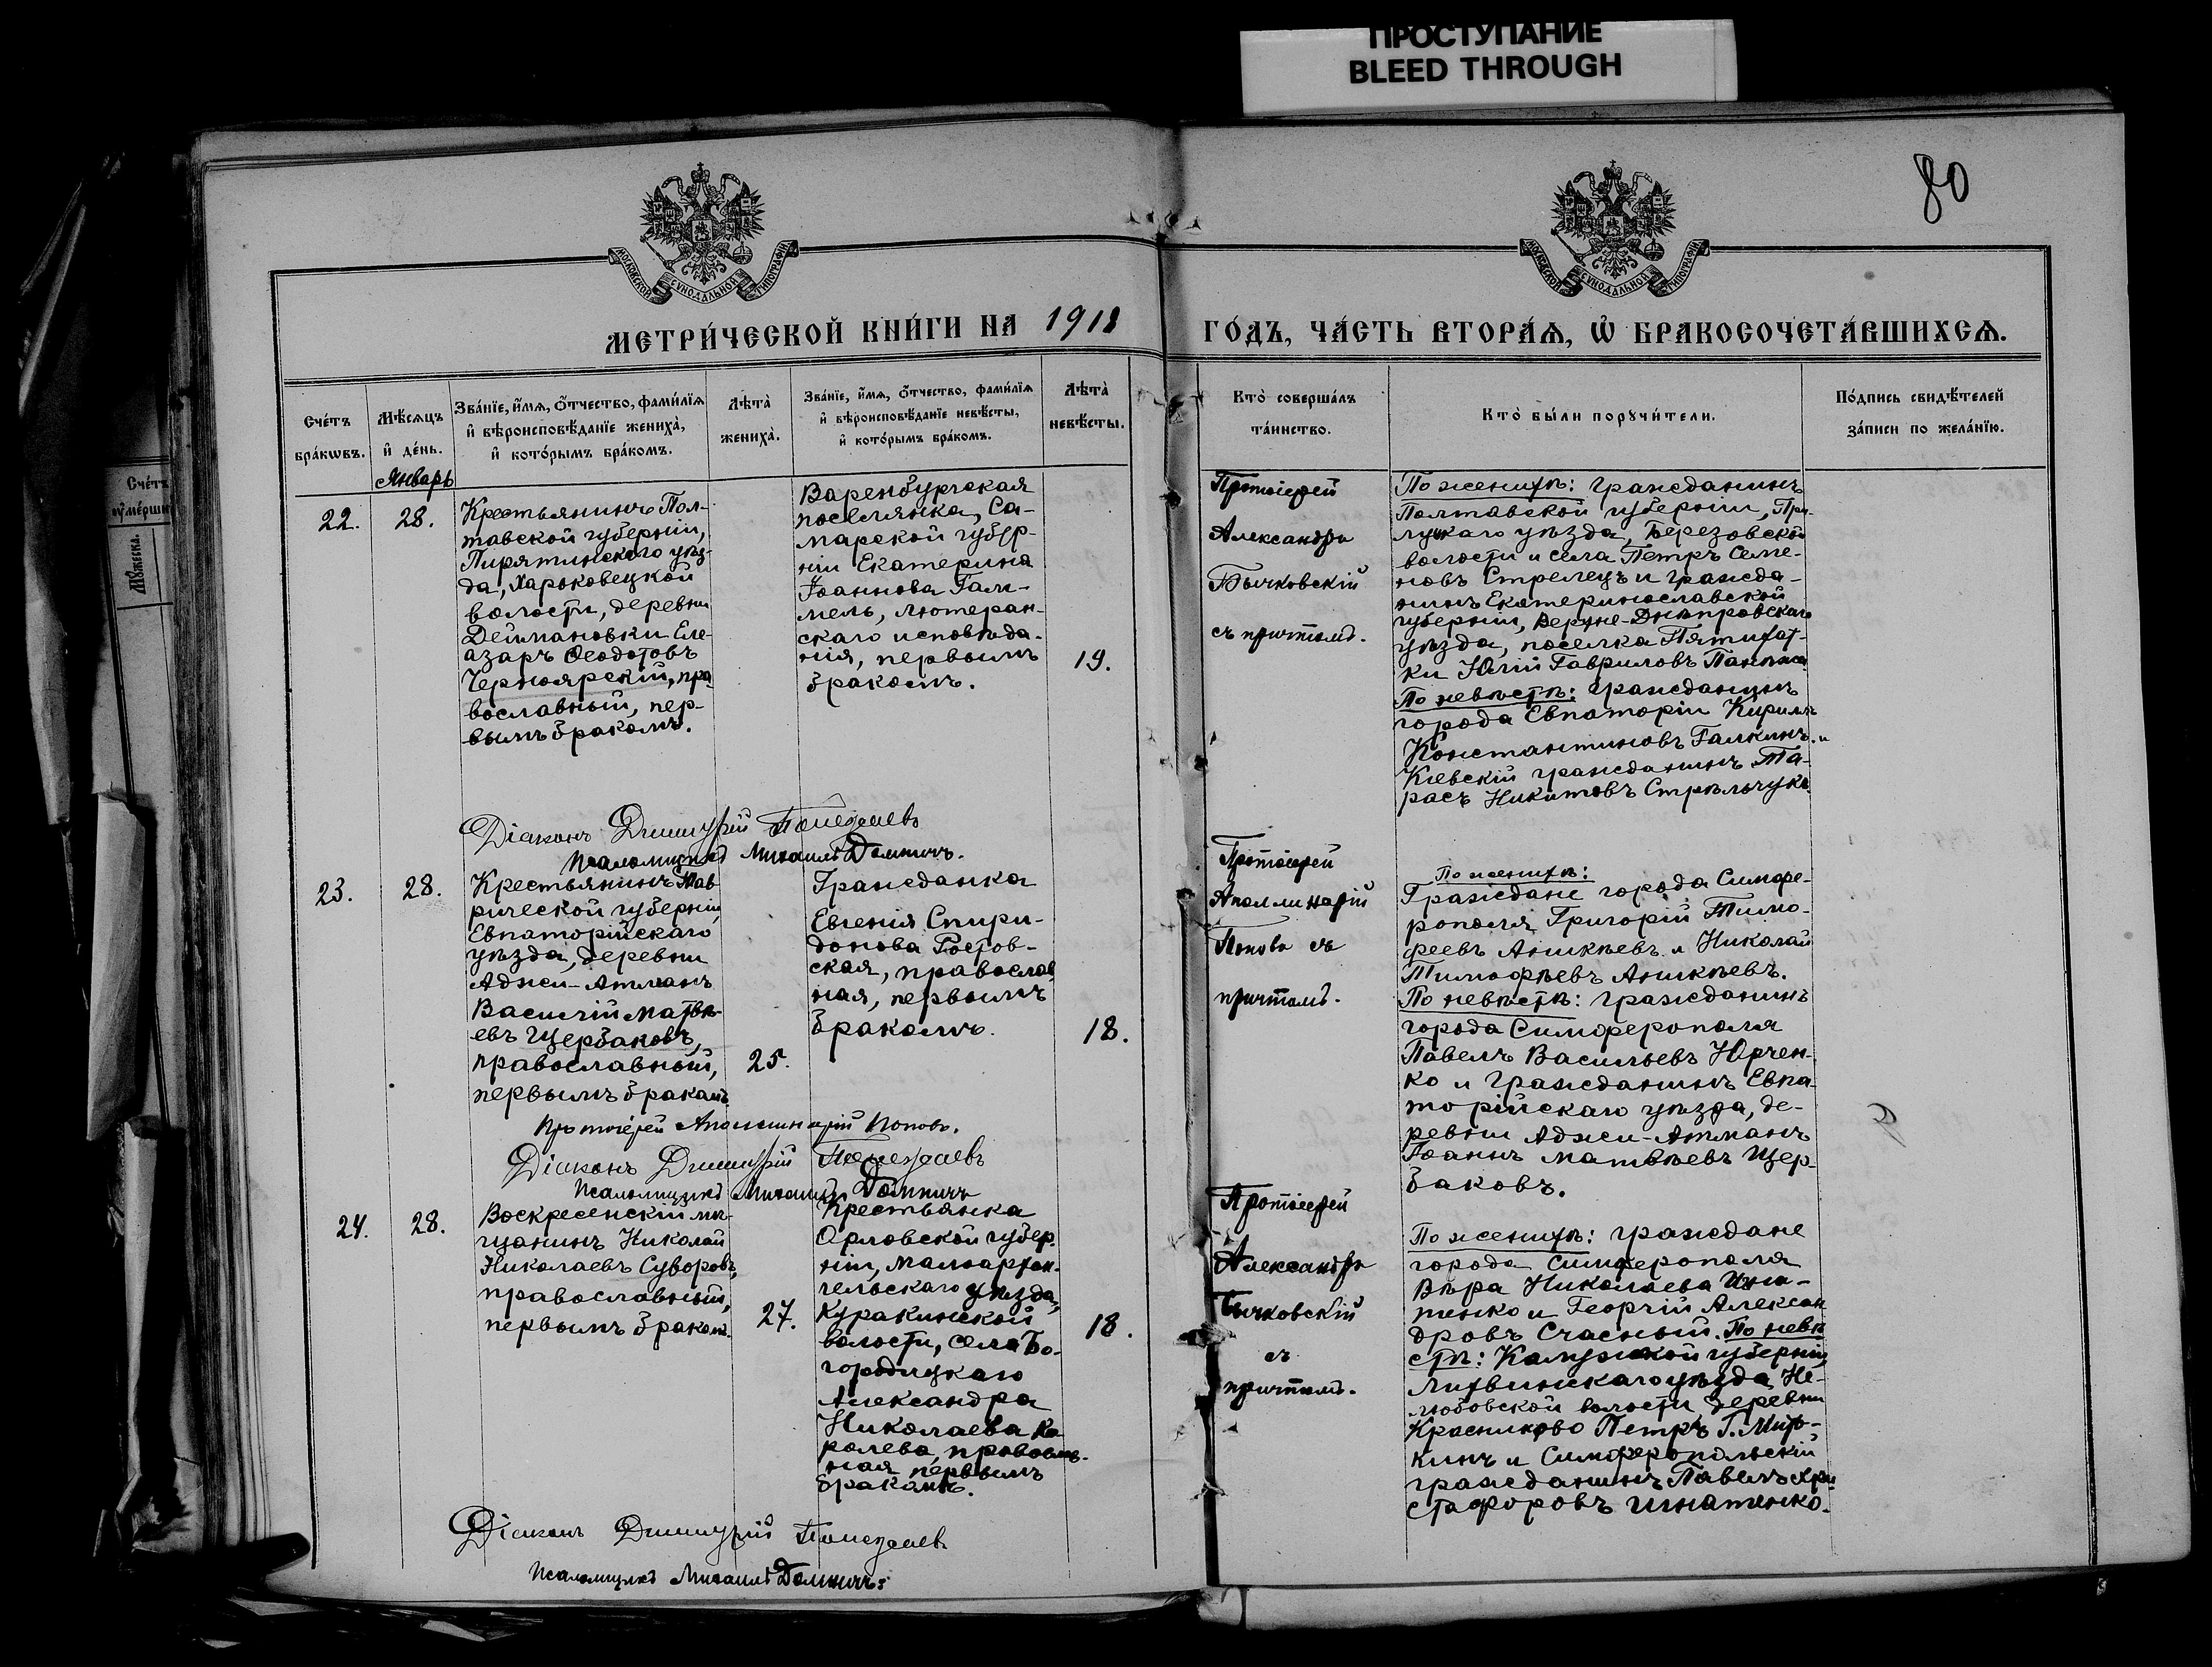 ПРОСТУПАНИЕ
BLEED THROUGH
80
МОСКОВСКОЙ СѴНОДАЛЬНОЙ ТИПОГРАФІИ
МОСКОВСКОЙ СѴНОДАЛЬНОЙ ТИПОГРАФІИ
МЕТРИ́ЧЕСКОЙ КНИ́ГИ НА 1918 ГО́ДЪ, ЧА́СТЬ ВТОРА́Ѧ, Ѡ҆ БРАКОСОЧЕТА́ВШИХСѦ.
Сче́тъ
бра́кωвъ.
Мѣ́сяцъ
и҆ де́нь.
Зва́нїе, и҆́мѧ, ѻ҆́тчество, фами́лїѧ
и҆ вѣроисповѣ́данїе жениха̀,
и҆ кото́рымъ бра́комъ.
Лѣ́та̀
жениха̀.
Зва́нїе, и҆́мѧ, ѻ҆́тчество, фами́лїѧ
и҆ вѣроисповѣ́данїе невѣ́сты,
и҆ кото́рымъ бра́комъ.
Лѣ́та̀
невѣ́сты.
Кто̀ соверша́лъ
та́инство.
Кто̀ бы́ли порꙋчи́тели.
По́дпись свидѣ́телей
за́писи по жела́нїю.
Январь
22.
28.
Крестьянинъ Пол-
тавской губерніи,
Пирятинскаго уѣз-
да, Харьковецкой
волости, деревни
Деймановки Еле-
азаръ Ѳеодотовъ
Черноярскій, пра-
вославный, пер-
вымъ бракомъ.
Варенбургская
поселянка, Са-
марской губер-
ніи Екатерина
Іоаннова Гам-
мель, лютеран-
скаго исповѣда-
нія, первымъ
бракомъ.
19.
Протоіерей
Александръ
Бычковскій
съ причтомъ.
По женихѣ: гражданинъ
Полтавской губерніи, При-
лукаго уѣзда, Березовской
волости и села Петръ Семе-
новъ Стрелецъ и гражда-
нинъ Екатеринославской
губерніи, Верхне-Днѣпровскаго
уѣзда, поселка Пятихат-
ки Юлій Гавриловъ
По невѣстѣ: гражданинъ
города Евпаторіи Кирилъ
Константиновъ Галкинъ и
Кіевскій гражданинъ Та-
расъ Никитовъ Стрѣльчукъ
Діаконъ Димитрій
Псаломщикъ Михаилъ
23.
28.
Крестьянинъ Тав-
рической губерніи
Евпаторійскаго
уѣзда, деревни
Аджи-Атманъ
Василій Матвѣ-
евъ Щербаковъ,
православный,
первымъ бракомъ
25.
Гражданка
Евгенія Спири-
донова Ростов-
ская, православ
ная, первымъ
бракомъ.
18.
Протоіерей
Аполлинарій
Поповъ съ
причтомъ.
По женихѣ:
Граждане города Симфе-
рополя Григорій Тимо-
феевъ Аникѣевъ и Николай
Тимофѣевъ Аникѣевъ.
По невѣстѣ: гражданинъ
города Симферополя
Павелъ Васильевъ Юрчен-
ко и гражданинъ Евпа-
торійскаго уѣзда, де-
ревни Аджи-Атманъ
Іоаннъ Матвѣевъ Щер-
баковъ.
Протоіерей Аполлинарій Поповъ.
Діаконъ Димитрій
Псаломщикъ Михаилъ
24.
28.
Воскресенскій мѣ-
щанинъ Николай
Николаевъ Суворовъ,
православный,
первымъ бракомъ.
27.
Крестьянка
Орловской губер-
ніи, Малоархан-
гельскаго уѣзда,
Куракинской
волости, села Бо-
городицкаго
Александра
Николаева Ко-
ролева, православ-
ная первымъ
бракомъ.
18.
Протоіерей
Александръ
Бычковскій
съ
причтомъ.
По женихѣ: граждане
города Симферополя
Вѣра Николаева Игна-
тенко и Георгій Алексан
дровъ Счасный. По невѣ
стѣ: Калужской губерніи,
Лихвинскаго уѣзда, Не-
любовской волости деревни
Красниково Петръ Г.
кинъ и Симферопольскій
гражданинъ Павелъ Хри
стофоровъ Игнатенко.
Діаконъ Димитрій
Псаломщикъ Михаилъ
Сче́тъ
Мꙋ́жеска.